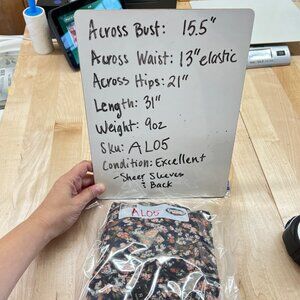 Across Bust: 15.5"
Across Waist: 13" elastic
Across Hips: 21"
Length: 31"
Weight: 9oz
Sku: AL05
Condition: Excellent
- Sheer Sleeves
& Back
AL05